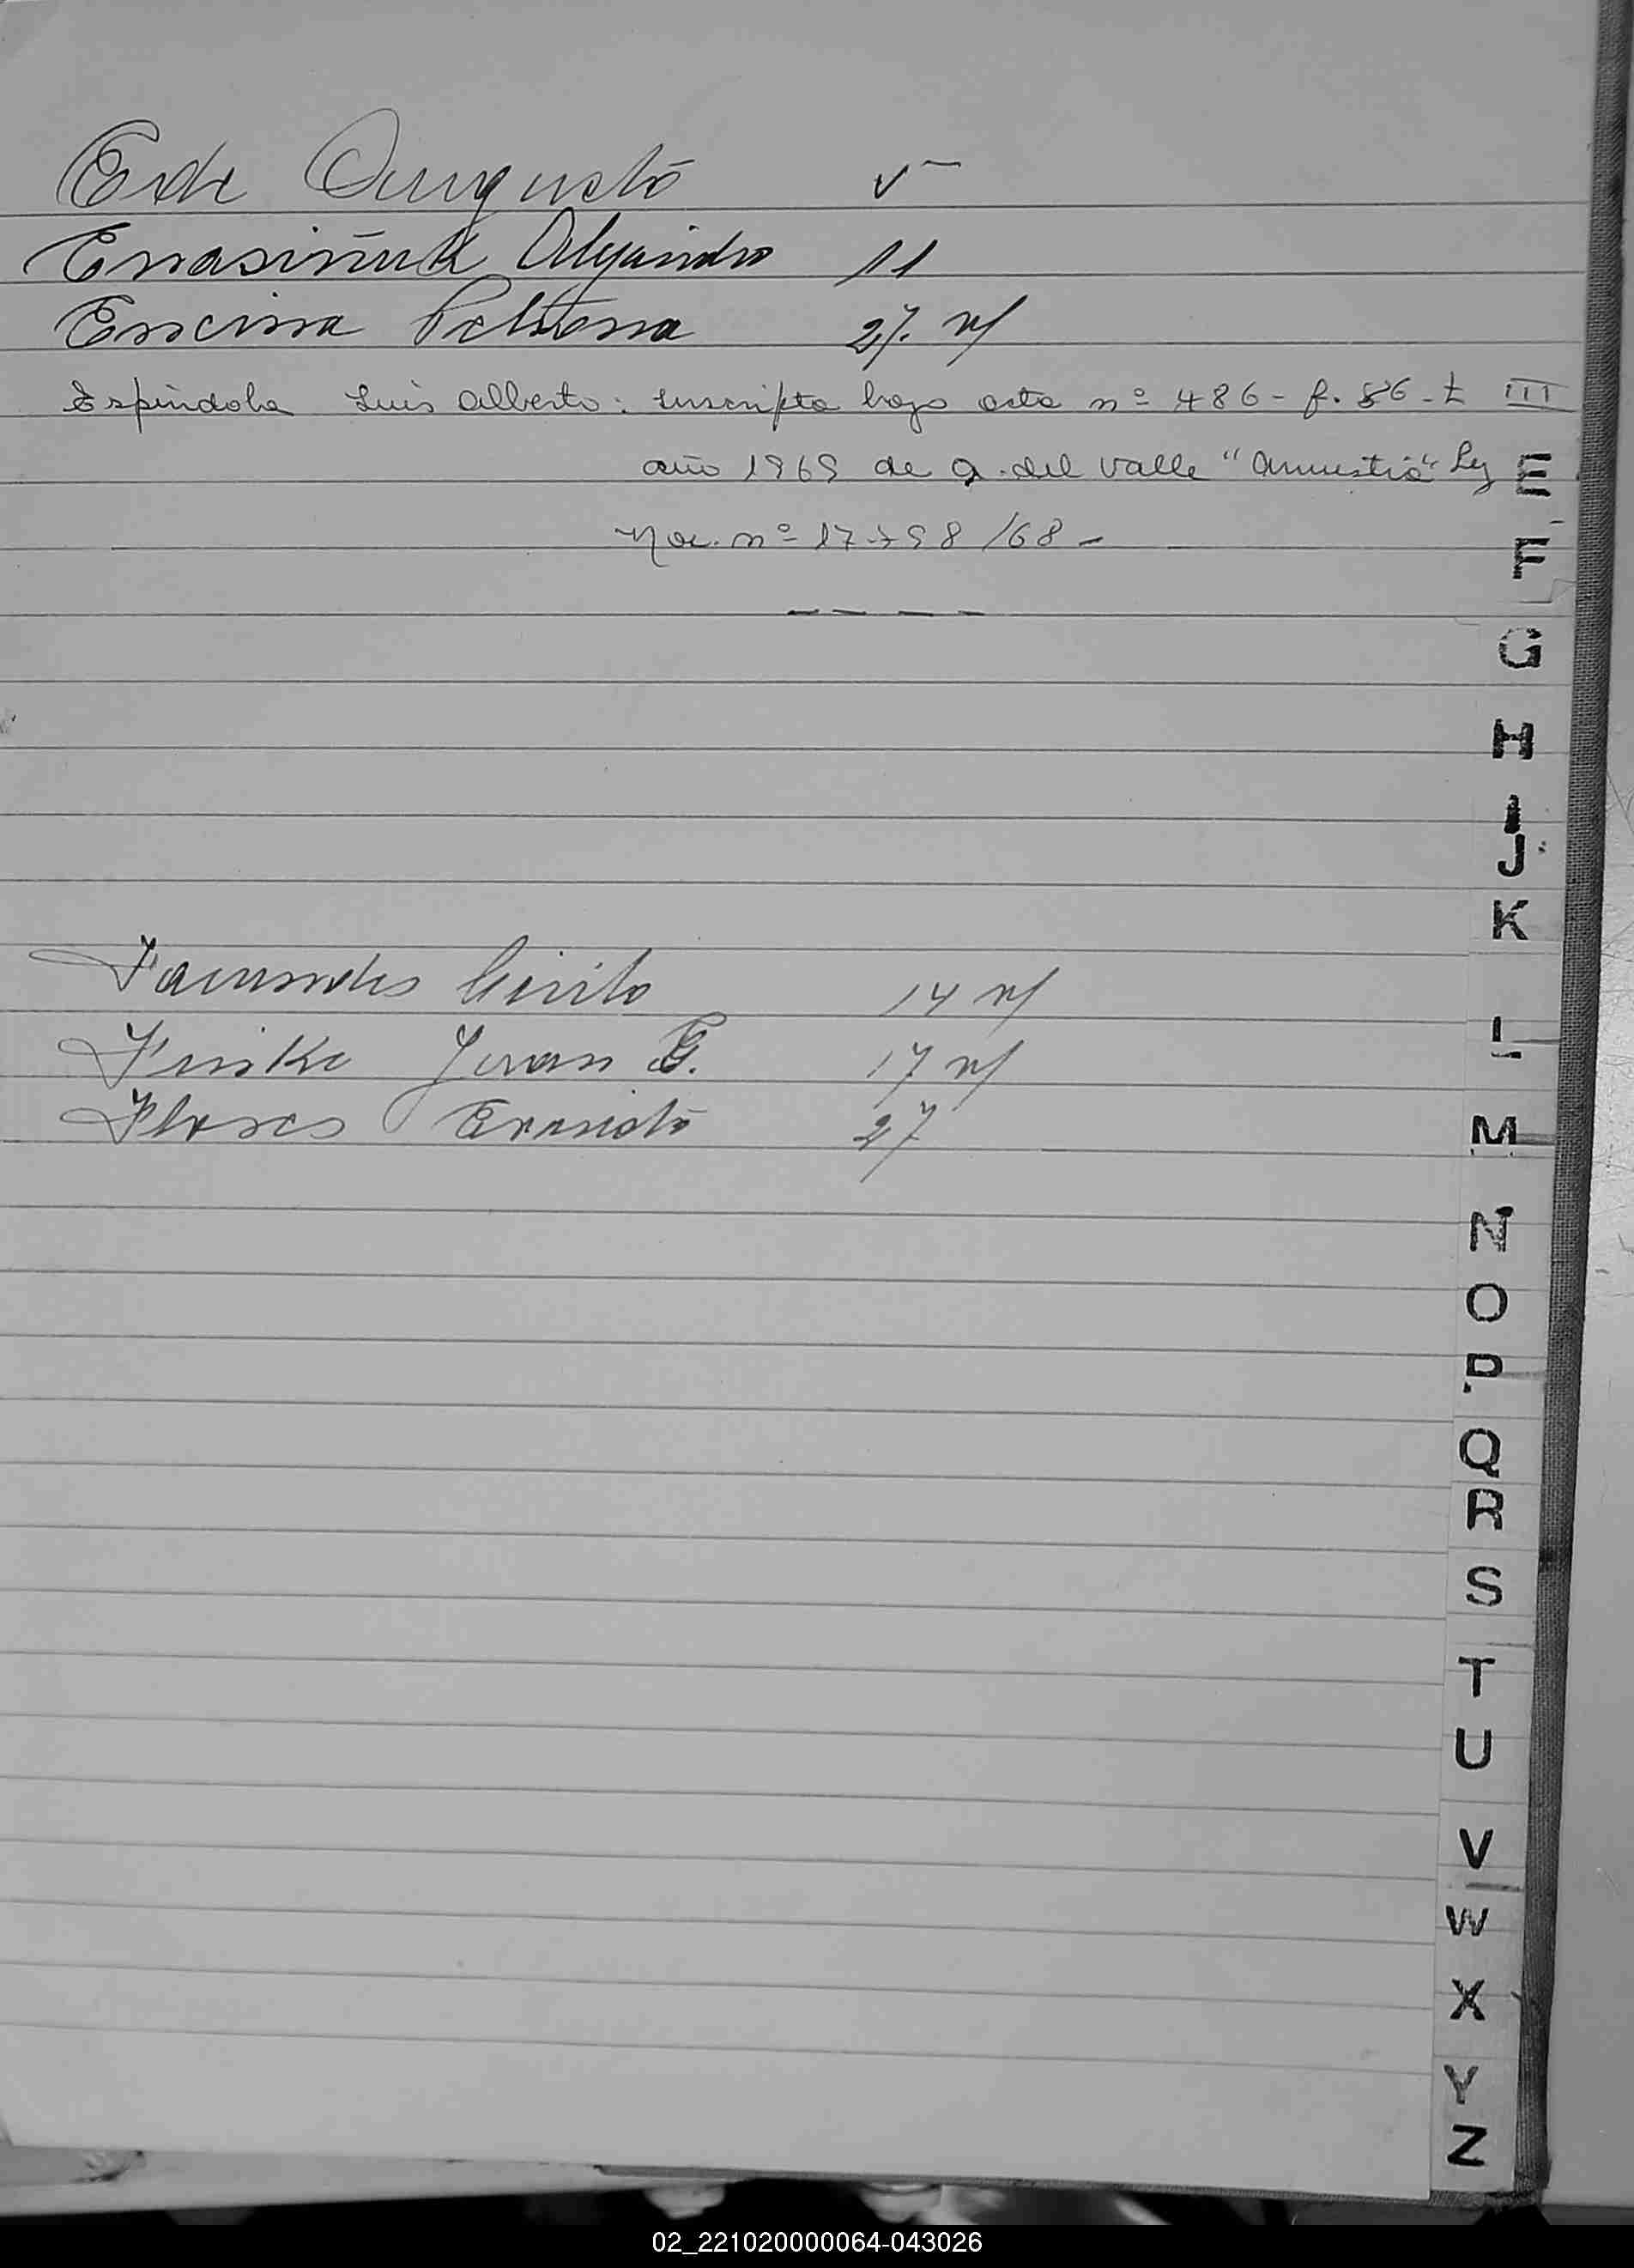 Ede Aurgusto 5
Alejandro 11
Encina 27. vf
Espindola Luis Alberto: inscripto bajo acta nº 486 - f. 86 - t III
año 1969 de A. del Valle "Amnistia" Ley
Nac. nº 17798/68 -
Facundes Cirilo 14 vf
Finke Juan G. 17 vf
Flores Evaristo 27
E
F
G
H
I
J
K
L
M
N
O
P
Q
R
S
T
U
V
W
X
Y
Z
02_221020000064-043026